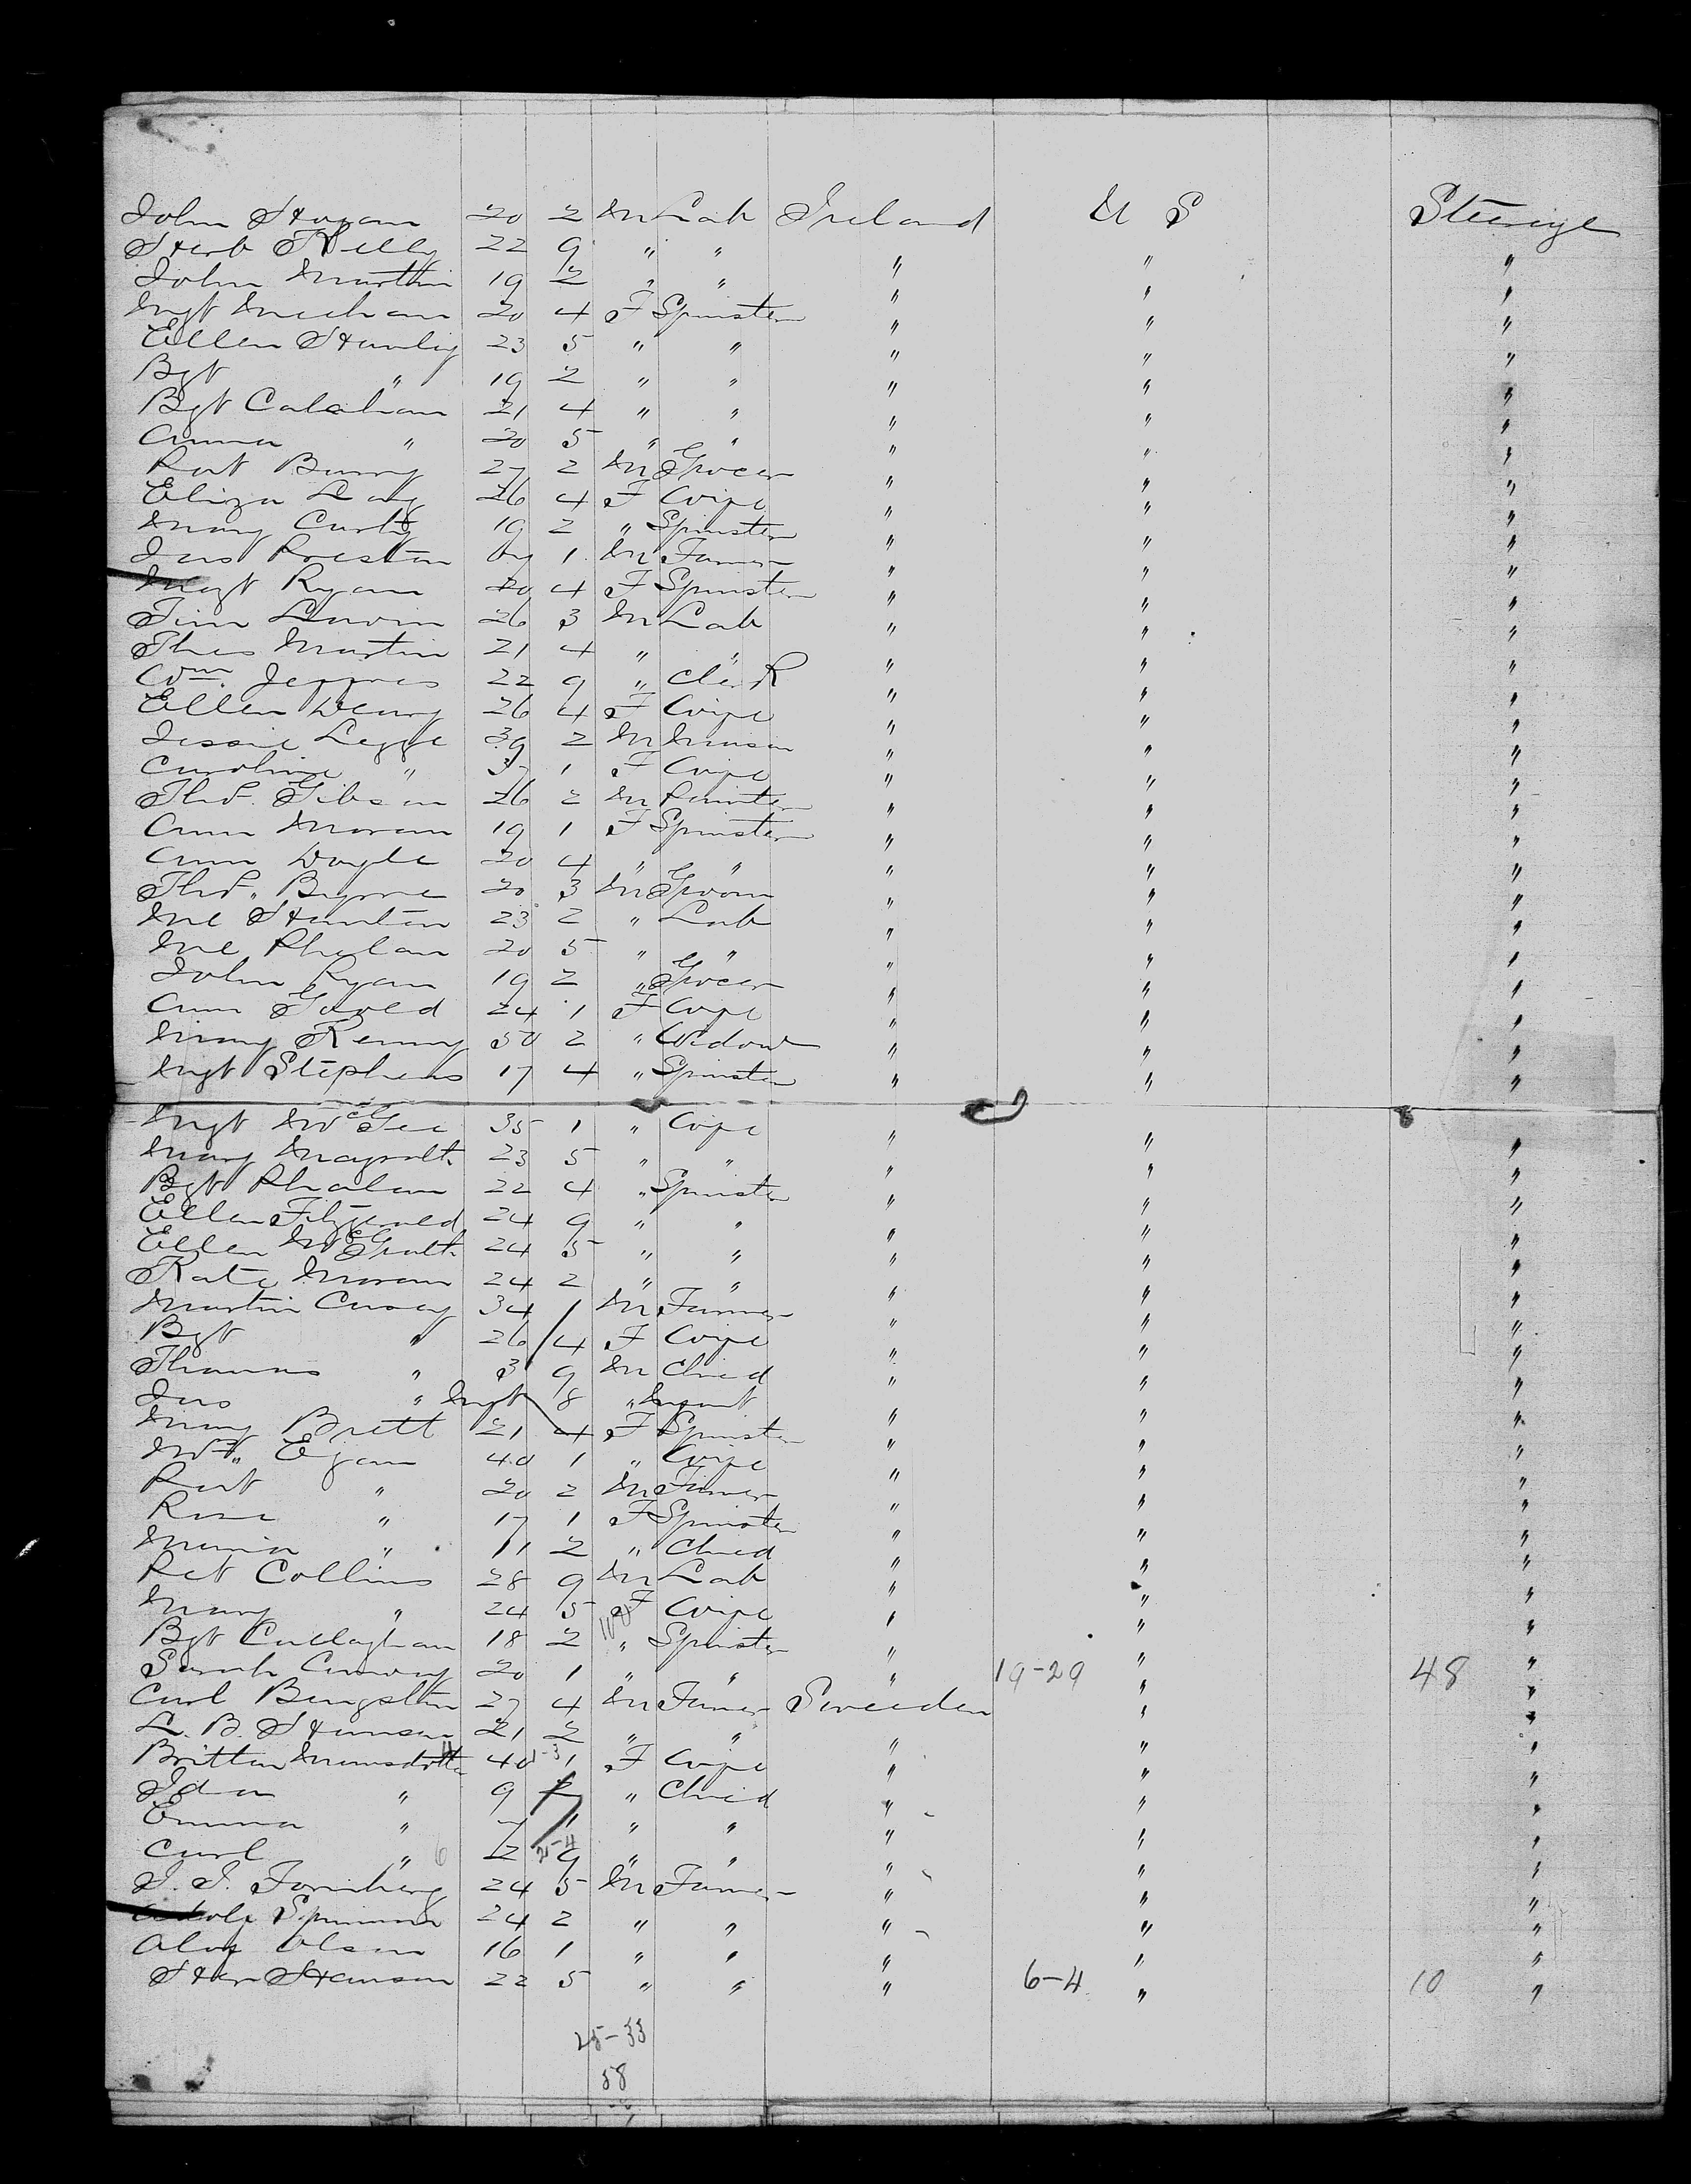 John Hogan 20 2 M Lab Ireland U S Steerage
Herb Kelly 22 9 " " " " "
John Martin 19 2 " " " " "
Mgt Meehan 20 4 F Spinster " " "
Ellen Hanley 23 5 " " " " "
Bgt " 19 2 " " " " "
Bgt Calahan 21 4 " " " " "
Anna " 20 5 " " " " "
Pat Barry 27 2 M Grocer " " "
Eliza Lang 26 4 F Wife " " "
Mary Curty 19 2 " Spinster " " "
Jas Preston 67 1 M Farmer " " "
Magt Ryan 20 4 F Spinster " " "
Tim Lavin 26 3 M Lab " " "
Thos Martin 21 4 " " " " "
Wm. Jeffries 22 9 " Clerk " " "
Ellen Henry 26 4 F Wife " " "
Jessie Legge 39 2 M Mason " " "
Caroline " 37 1 F Wife " " "
Thos. Gibson 26 2 M Painter " " "
Ann Moran 19 1 F Spinster " " "
Ann Doyle 20 4 " " " " "
Thos. Byrne 20 3 M Groom " " "
Ml Stanton 23 2 " Lab " " "
Ml Phelan 20 5 " " " " "
John Ryan 19 2 " Grocer " " "
Ann Gould 24 1 F Wife " " "
Mary Kenny 50 2 " Widow " " "
Mgt Stephens 17 4 " Spinster " " "
Mgt McGee 35 1 " Wife " " "
Mary 23 5 " " " " "
Bgt Phalan 22 4 " Spinster " " "
Ellen Fitzgerald 24 9 " " " " "
Ellen McGrath 24 5 " " " " "
Kate Moran 24 2 " " " " "
Martin Casey 34 1 M Farmer " " "
Bgt " 26 4 F Wife " " "
Thomas " 3 9 M Child " " "
Jas " Inft 8 " Infant " " "
Mary Brett 21 4 F Spinster " " "
Mrs. Egan 40 1 " Wife " " "
Pat " 20 2 M Farmer " " "
Rose " 17 1 F Spinster " " "
Maria " 11 2 " Child " " "
Pat Collins 28 9 M Lab " " "
Mary " 24 5 F Wife " " "
Bgt Callaghan 18 2 " Spinster " " "
Sarah Conway 20 1 " " " 19-29 " 48 "
Carl Bengston 27 4 M Farmer Sweeden " "
L. B. Hanson 21 2 " " " " "
Britta Mansdotter 40 1-3 1 F Wife " " "
Ida " 9 " Child " " "
Emma " 7 1 " " " " "
Carl " 6 2 2-4 9 " " " " "
J. J. Fornberg 24 5 M Farmer " " "
24 2 " " " " "
Olof Olson 16 1 " " " " "
Hanson 22 5 " " " 6-4 " 10 "
25-33
58